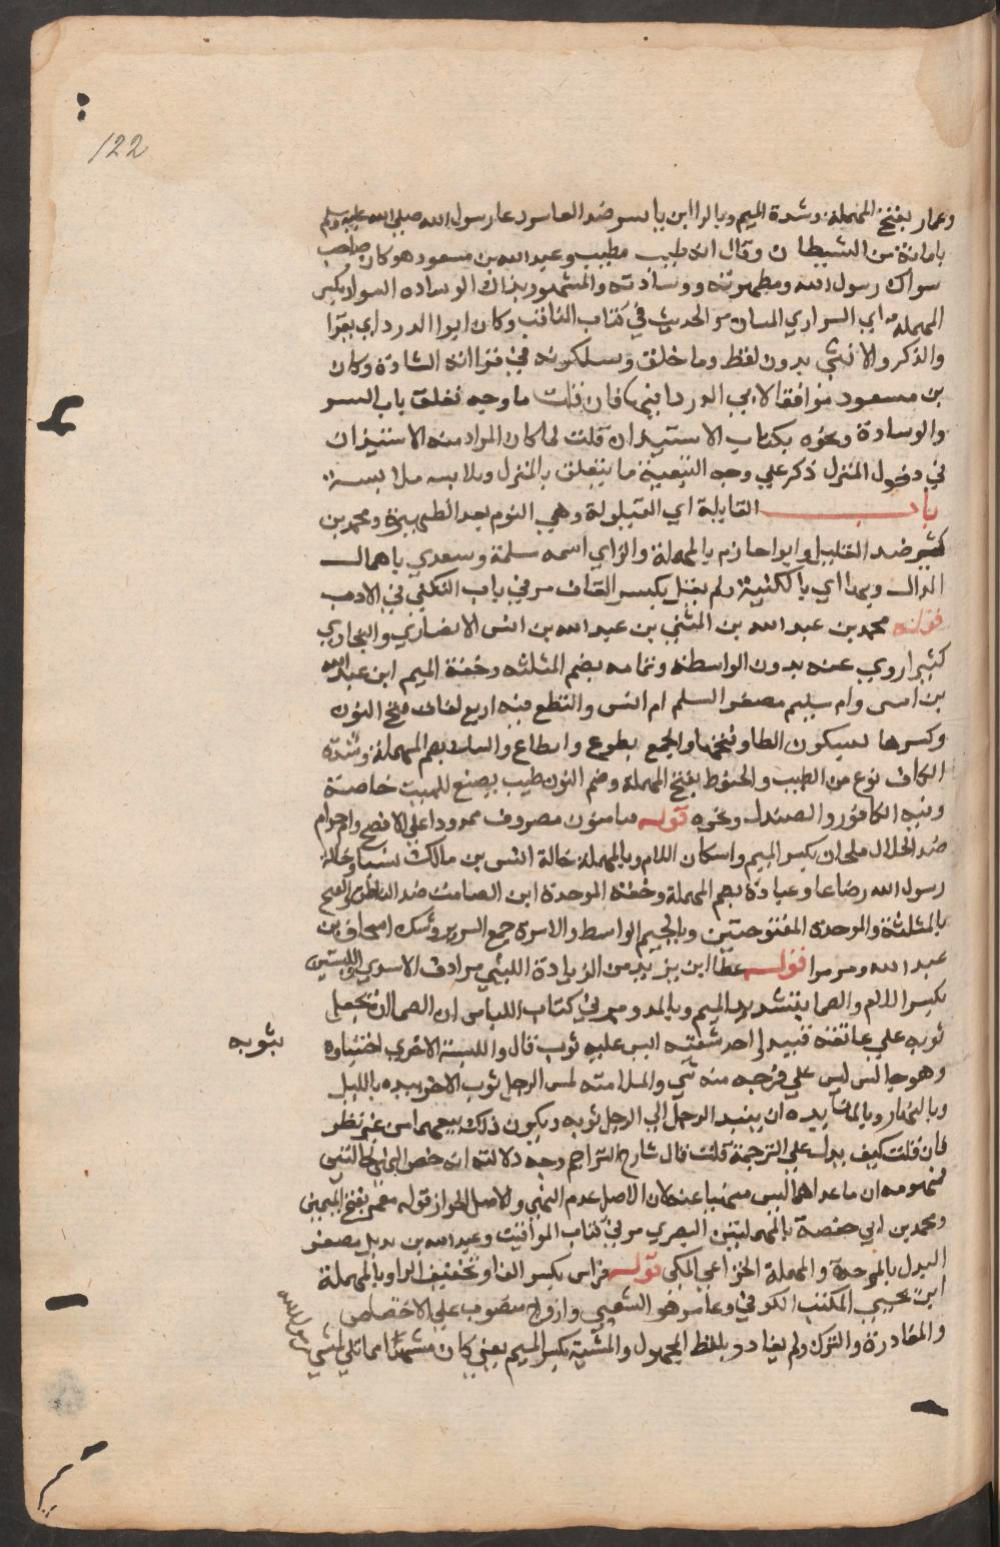 122
وعمار بفتح المهملة وشدة الميم وبالرا ابن ياسر ضد العاسر دعا رسول الله صلى الله عليه وسلم
بامانة من الشيطان وقال الخطيب مطيب وعبد الله بن مسعود هو كان صاحب
سواك رسول الله ومطهرته ووسادته والمشهور بذاك الوساده السواد بكسر
المهملة اي السرار اي المسار مر الحديث في كتاب المناقب وكان ابوا الدردا اي يقرا
والذكر والانثى بدون لفظ وما خلق ويسلكونه في قراانه الشاذة وكان
بن مسعود موافقا لابي الدردا فيها فان قلت ما وجه تعلق باب السر
والوسادة ونحوه بكتاب الاستيدان قلت لما كان المراد منه الاستيذان
في دخول المنزل ذكر علي وجه التبعية ما يتعلق بالمنزل ويلابسه ملابسة
باب القايلة اي القيلولة وهي النوم بعد الظهيرة ومحمد بن
كثير ضد القليل وابوا حازم بالمهملة والزاي اسمه سلمة وسعدي باهمال
الدال وبها اي بالكنية ولم يقل بكسر القاف مر في باب التكني في الادب
قوله محمد بن عبد الله بن المثني بن عبد الله بن انس الانصاري والبخاري
كثيرا روي عنه بدون الواسطة وثمامه بضم المثلثه وخفة الميم ابن عبد الله
بن انس وام سليم مصغر السلم ام انس والنطع فيه اربع لغات فتح النون
وكسرها لسيكون الطا وفتحها والجمع نطوع وانطاع والسك بضم المهملة وشدة
الكاف نوع من الطيب والحنوط بفتح المهملة وضم النون طيب يصنع للميت خاصة
وفيه الكافور والصندل ونحوه قوله مصروف ممدودا علي الافصح وام حرام
ضد الحلال ملحان بكسر الميم واسكان اللام وبالمهملة خالة انس بن مالك نسبا وخالة
رسول الله رضاعا وعبادة بضم المهملة وخفة الموحدة ابن الصامت ضد الناطق والثبج
بالمثلثة والموحدة المفتوحتين وبالجيم الوسط والاسرة جمع السرير وشك اسحاق بن
عبد الله ومر مرا قوله عطا ابن يزيد من الزيادة الليثي مرادف الاسدي واللبستين
بكسر اللام والصما بتشديد الميم وبالمد ومر في كتاب اللباس ان الصما ان تجعل
ثوبه علي عاتقه فيبدوا احد شقيه ليس عليه ثوب قال واللبسة الاخري احتباوه بثوبه
وهو جالس ليس علي فرجه منه شي والملامسة لمس الرجل ثوب الاخر بيده بالليل
وبالنهار والمنابذه ان ينبذ الرجل الي الرجل ثوبه ويكون ذلك بيعهما من غير نظر
فان قلت كيف يدل علي الترجمة قلت قال شارح التراجم وجه دلالته انه خص النهي بحالتين
فمفهومه ان ما عداهما ليس منهيا عنه لان الاصل عدم النهي والاصل الجواز قوله معمر بفتح الميمين
ومحمد بن ابي حفصة بالمهملتين البصري مر في كتاب المواقيت وعبد الله بن بديل مصغر
البدل بالموحدة والمهملة الخزاعي المكي قوله فراس بكسر الفا وتخفيف الرا وبالمهملة
ابن يحيي المكتب الكوفي وعامر هو الشعبي وازواج منصوب علي الاختصاص
والمغادرة والترك ولم يغادر بلفظ المجهول والمشية بكسر الميم يعني كان مشيها مماثلي لمشي